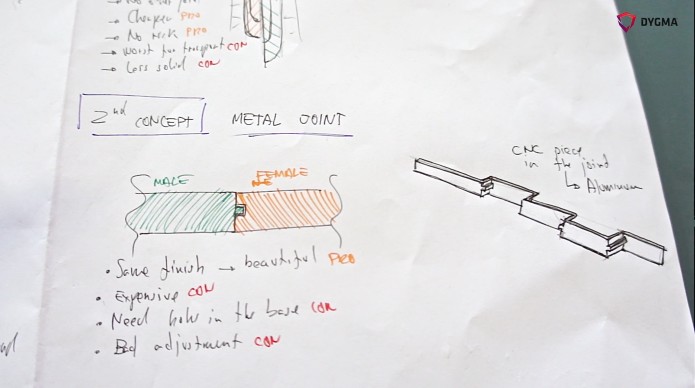 DYGMA
→ Cheaper PRO
→ No risk PRO
→ Worst for transport CON
→ Less solid CON
2nd CONCEPT METAL JOINT
MALE
FEMALE
CNC piece
in the joint
↳ Aluminum
• Same finish → beautiful PRO
• Expensive CON
• Need hole in the base CON
• Bad adjustment CON